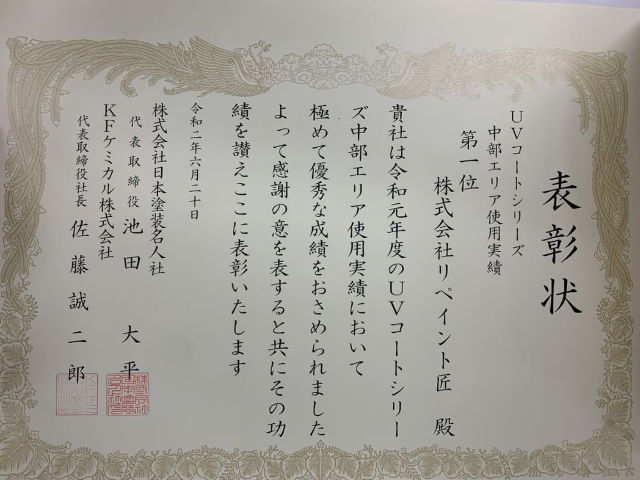 表彰状
UVコートシリーズ
中部エリア使用実績
第一位
株式会社リペイント匠 殿
貴社は令和元年度のUVコートシリー
ズ中部エリア使用実績において
極めて優秀な成績をおさめられました
よって感謝の意を表すると共にその功
績を讃えここに表彰いたします
令和二年六月二十日
株式会社日本塗装名人社
代表取締役 池田 大平
KFケミカル株式会社
代表取締役社長 佐藤誠二郎